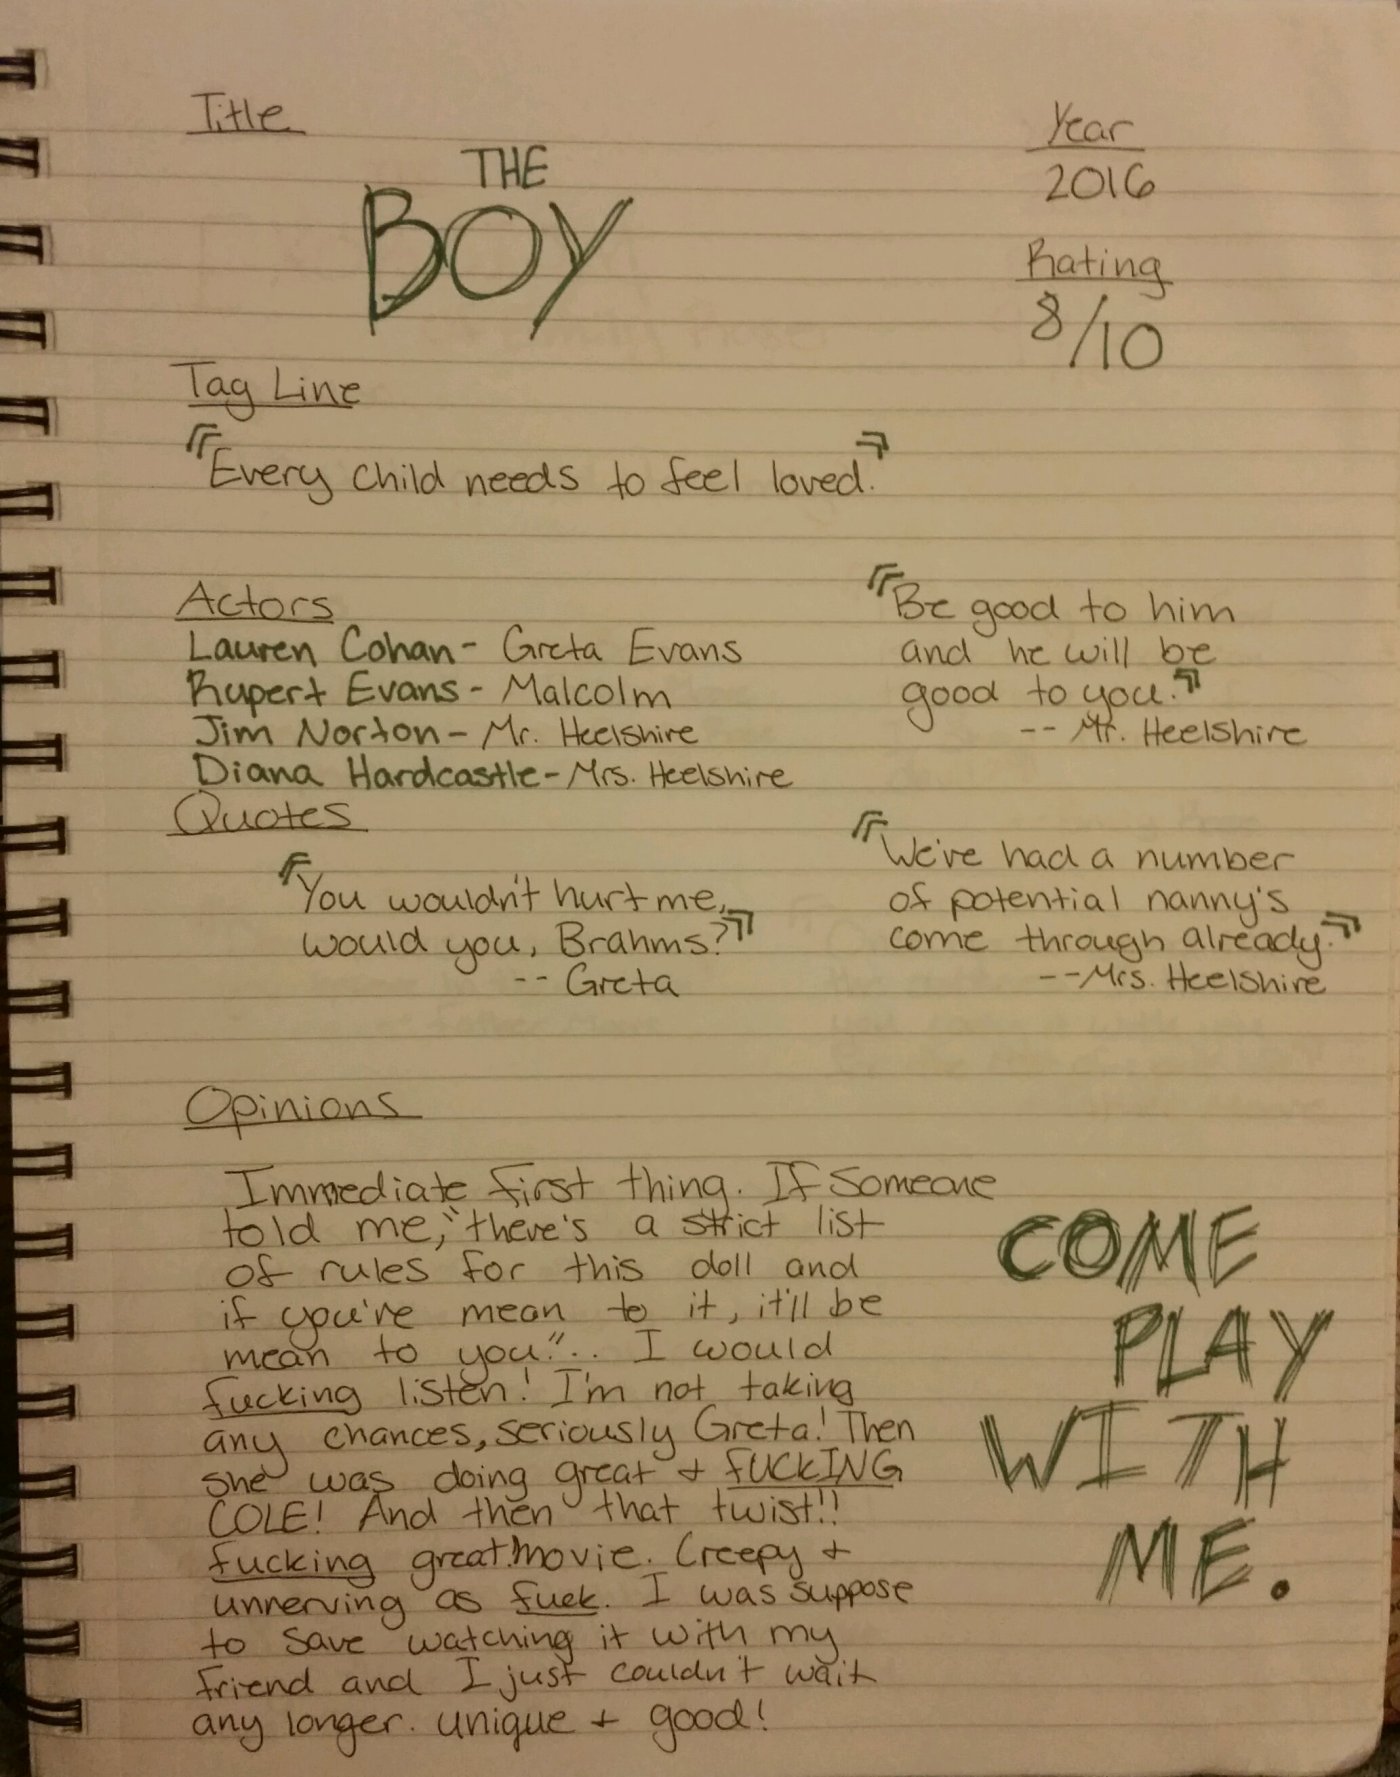 Title
THE
BOY
Year
2016
Rating
8/10
Tag Line
"Every child needs to feel loved."
Actors
Lauren Cohan - Greta Evans
Rupert Evans - Malcolm
Jim Norton - Mr. Heelshire
Diana Hardcastle - Mrs. Heelshire
"Be good to him
and he will be
good to you."
-- Mr. Heelshire
Quotes
"You wouldn't hurt me,
would you, Brahms?"
-- Greta
"We've had a number
of potential nanny's
come through already."
--Mrs. Heelshire
Opinions
Immediate first thing. If someone
told me, "there's a strict list
of rules for this doll and
if you're mean to it, it'll be
mean to you.".. I would
fucking listen! I'm not taking
any chances, seriously Greta! Then
she was doing great + FUCKING
COLE! And then that twist!!
fucking great movie. Creepy +
unnerving as fuck. I was suppose
to save watching it with my
friend and I just couldn't wait
any longer. unique + good!
COME
PLAY
WITH
ME.